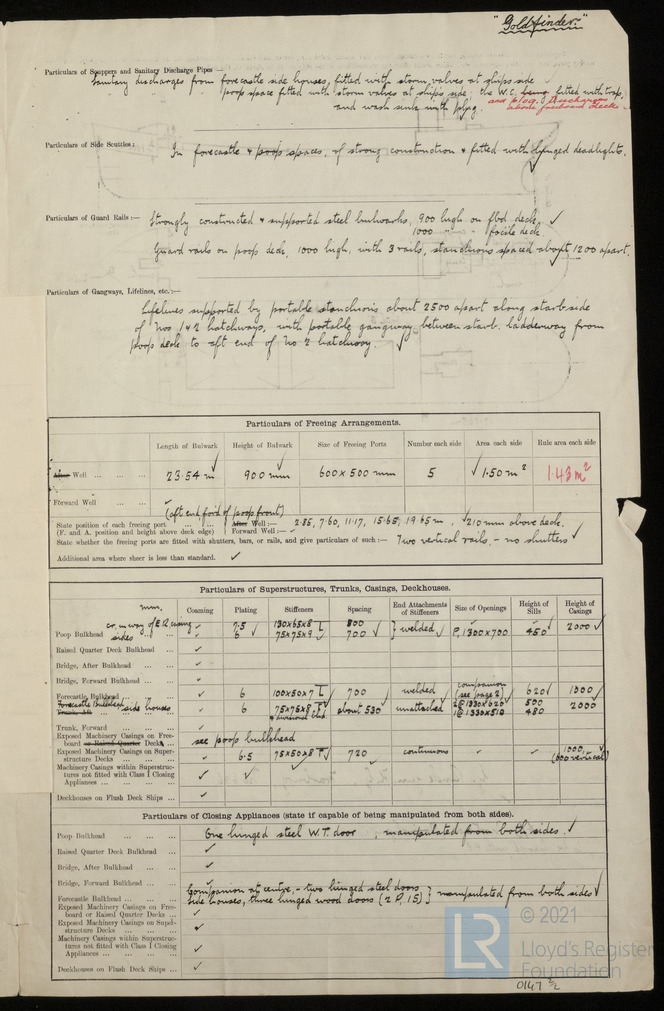 "Goldfinder."
Particulars of Scuppers and Sanitary Discharge Pipes —
Sanitary discharges from forecastle side houses, fitted with storm valves at ships side ✓
poop space fitted with storm valves at ship's side. the W.C. being fitted with trap,
and wash sinks with plug. and plog. Discharges
above freeboard deck.
Particulars of Side Scuttles:
In forecastle & poop spaces, of strong construction & fitted with hinged deadlights.
Particulars of Guard Rails:—
Strongly constructed & supported steel bulwarks, 900 high on fbd deck, ✓
1000 " " focsle deck
Guard rails on poop deck, 1000 high, with 3 rails, stanchions spaced about 1200 apart.
Particulars of Gangways, Lifelines, etc.:—
Lifelines supported by portable stanchions about 2500 apart along starb. side
of Nos 1 & 2 hatchways, with portable gangway between starb. ladderway from
poop deck to aft end of No 2 hatchway. ✓
Particulars of Freeing Arrangements.
Length of Bulwark Height of Bulwark Size of Freeing Ports Number each side Area each side Rule area each side
After Well ... ... ... 23.54 m ✓ 900 mm ✓ 600 x 500 mm 5 ✓ 1.50 m² 1.43 m²
Forward Well ... ... ✓
(aft end for'd of poop front)
State position of each freeing port ... ... After Well:— 2.85, 7.60, 11.17, 15.65, 19.65 m, ✓ 210 mm above deck.
(F. and A. position and height above deck edge) Forward Well:— ✓
State whether the freeing ports are fitted with shutters, bars, or rails, and give particulars of such:— Two vertical rails, – no shutters ✓
Additional area where sheer is less than standard. ✓
Particulars of Superstructures, Trunks, Casings, Deckhouses.
mm. Coaming Plating Stiffeners Spacing End Attachments of Stiffeners Size of Openings Height of Sills Height of Casings
cr. in way of E.R. casing ✓ 7.5 130x65x8 800
Poop Bulkhead sides ... ✓ 6 ✓ 75x75x9 ✓ 700 ✓ } welded ✓ P, 1300x700 450 ✓ 2000 ✓
Raised Quarter Deck Bulkhead ✓
Bridge, After Bulkhead ... ... ✓
Bridge, Forward Bulkhead ... ✓
Forecastle Bulkhead ... ✓ 6 100x50x7 700 welded companion (see page 2) 620 ✓ 1800
Forecastle Bulkhead
Trunk, Aft side houses ✓ 6 75x75x8 about 530 ✓ unattached ✓ 2@1330x620 500 2000
1@1330x510 480
Trunk, Forward ... ... ... ✓
Exposed Machinery Casings on Free-
board or Raised Quarter Decks ... see poop bulkhead
Exposed Machinery Casings on Super-
structure Decks ... ... ... ✓ 6.5 75x50x8 ✓ 720 continuous ✓ ✓ 1000, (600 vertical)
Machinery Casings within Superstruc-
tures not fitted with Class I Closing
Appliances ... ... ... ✓ ✓
Deckhouses on Flush Deck Ships ... ✓
Particulars of Closing Appliances (state if capable of being manipulated from both sides).
Poop Bulkhead ... ... ... One hinged steel W.T. door, manipulated from both sides. ✓
Raised Quarter Deck Bulkhead ... ✓
Bridge, After Bulkhead ... ... ✓
Bridge, Forward Bulkhead ... ... ✓
Companion at centre, – two hinged steel doors
Forecastle Bulkhead ... ... ... Side houses, three hinged wood doors (2 P, 1 S) } manipulated from both sides ✓
Exposed Machinery Casings on Free-
board or Raised Quarter Decks ... ✓
Exposed Machinery Casings on Super-
structure Decks ... ... ... ✓
Machinery Casings within Superstruc-
tures not fitted with Class I Closing
Appliances ... ... ... ✓
Deckhouses on Flush Deck Ships ... ✓
LR © 2021
Lloyd's Register
Foundation
0147 2/2